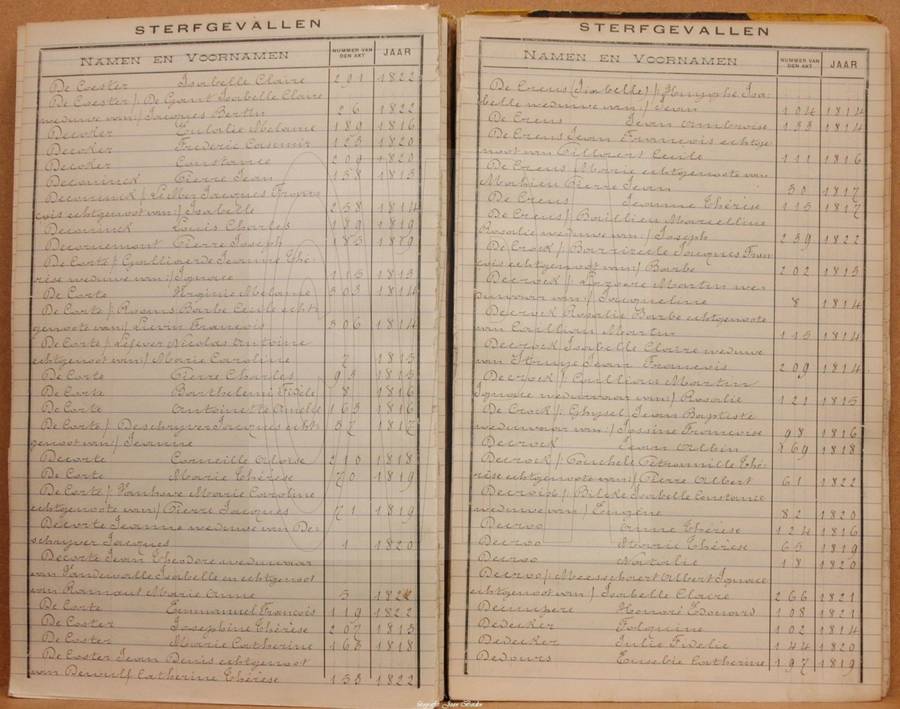 STERFGEVALLEN
NAMEN EN VOORNAMEN NUMMER VAN DEN AKT JAAR
De Coester Isabelle Claire 291 1822
De Coester / De Gant Isabelle Claire
weduwe van / Jacques Bertin 26 1822
Decoker Eulalie Melanie 189 1816
Decoker Frederic Casimir 123 1820
Decoker Constance 209 1820
Deconinck Pierre Jean 158 1813
Deconinck / Jacques Fran
cois echtgenoot van / Isabelle 258 1814
Deconinck Louis Charles 139 1819
Decornemont Pierre Joseph 183 1819
De Corte / Jeannie Thé
rèse weduwe van / Ignace 115 1813
De Corte Virginie Melanie 303 1814
De Corte / Rosans Barbe Cecile echt
genoote van / Lievin Francois 306 1814
De Corte / Lefever Nicolas Antoine
echtgenoot van / Marie Caroline 7 1815
De Corte Pierre Charles 93 1815
De Corte Barthelemi Fidèle 8 1816
De Corte Antoinette Amelie 163 1816
De Corte / Deschryver Jacques echt
genoot van / Jeanne 37 1817
Decorte Corneille Aloise 210 1818
De Corte Marie Thérèse 70 1819
De Corte / Vanhove Marie Caroline
echtgenoote van / Pierre Jacques 71 1819
Decorte Jeanne weduwe van De
schryver Jacques 1 1820
Decorte Jean Theodore weduwaar
van Vandewalle Isabelle en echtgenoot
van Ramaut Marie Anne 5 1821
De Corte Emmanuel Francois 119 1822
De Coster Josephine Thérèse 207 1813
De Coster Marie Catherine 163 1818
De Coster Jean Denis echtgenoot
van Dewulf Catherine Thérèse 133 1822
STERFGEVALLEN
NAMEN EN VOORNAMEN NUMMER VAN DEN AKT JAAR
De Creus (Isabelle) / Isa
belle weduwe van / Jean 104 1814
De Creus Jean Ambroise 133 1814
De Creus Jean Francois echtge
noot van Cecile 111 1816
De Creus / Marie echtgenoote van
Mathieu Pierre Jean 30 1817
De Creus Jeanne Thérèse 115 1817
De Creus / Marcelline
Rosalie weduwe van / Joseph 239 1822
De Crock / Jacques Fran
cois echtgenoot van / Barbe 202 1813
Decrock / Martin we
duwaar van / Jacqueline 8 1814
Decrock Rosalie Barbe echtgenoote
van Martin 115 1814
Decrock Isabelle Claire weduwe
van Jean Francois 209 1814
Decrock / Martin
Ignace weduwaar van / Rosalie 121 1815
De Crock / Ghysel Jean Baptiste
weduwaar van / Francoise 98 1816
Decrock Jean Albin 269 1818
Decrock / Petronille Thé
rèse echtgenoote van / Pierre Albert 61 1822
Decroix / Bilke Isabelle Constance
weduwe van / Eugène 82 1820
Decroo Anne Thérèse 124 1816
Decroo Marie Thérèse 65 1819
Decroo Natalie 18 1820
Decroo / Meesschaert Albert Ignace
echtgenoot van / Isabelle Claire 266 1821
Honoré Edouard 108 1821
Dedecker Folquine 102 1814
Dedecker Julie Fidelie 144 1820
Dedours Eusebie Catherine 197 1819